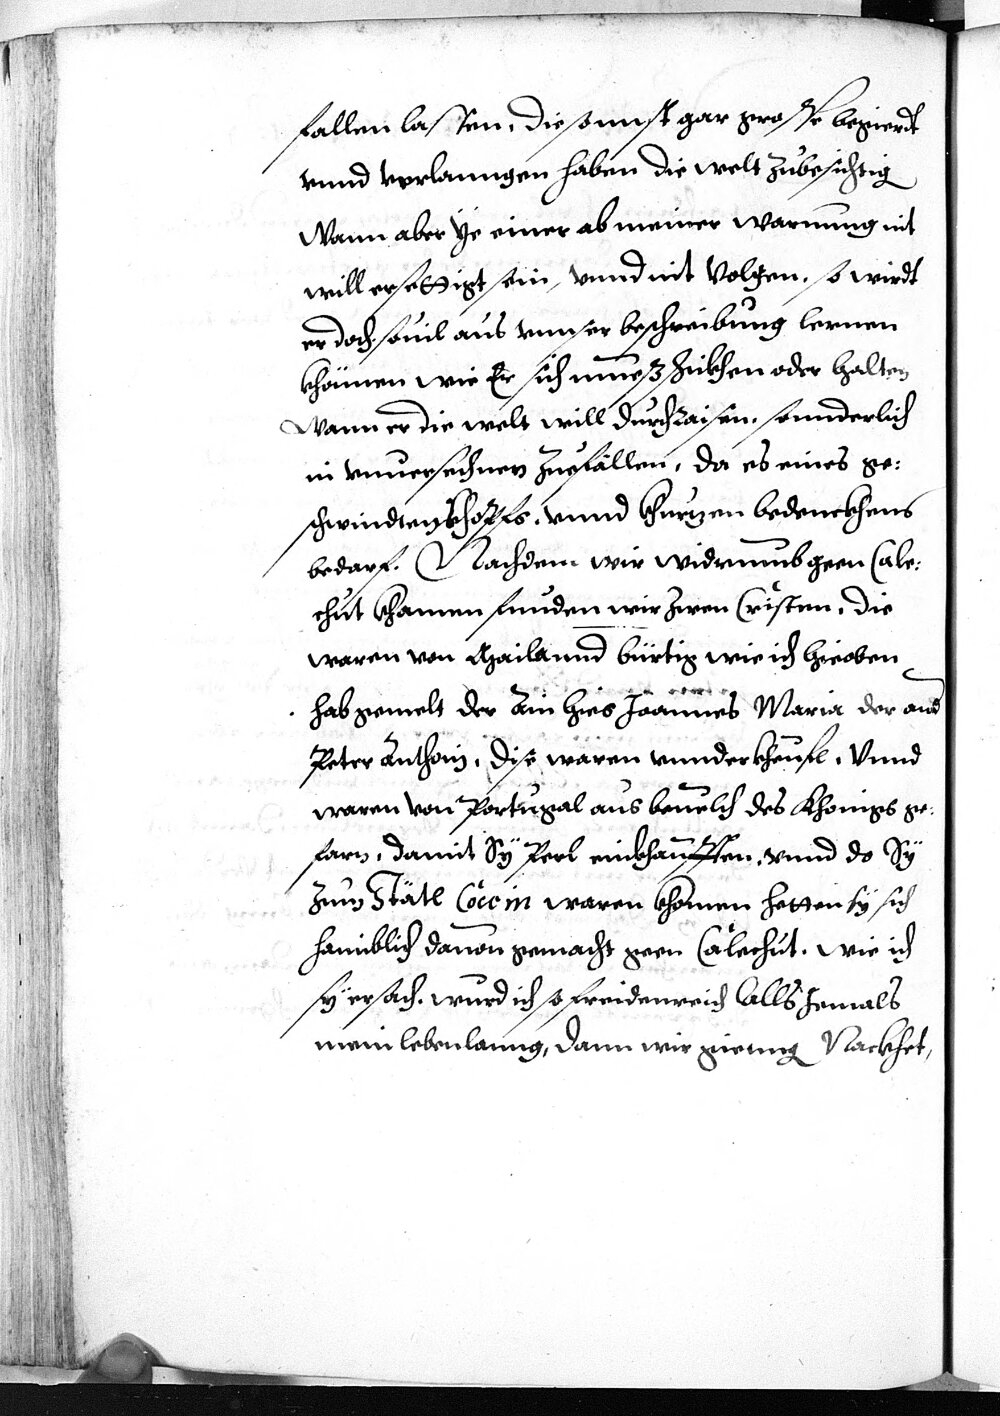 fallen lassen, die sunst gar grosse begierdt
vnnd verlanngen haben die welt zubesichtig
Wann aber ye einer ab meiner warnung nit
will ersettigt sein, vnnd nit Volgen, so wirdt
er doch souil aus vnnser beschreibung lernen
khönnen wie Er sich muess schikhen oder halten
Wann er die welt will durchraisen, sonnderlich
in vnuersechnen Zuefällen, da es eines ge:
schwindten khopffs, vnnd khurtzen bedenckhens
bedarf. Nachdem wir widrumb geen Cale:
chut khamen funden wir zwen Cristen, die
waren von Mailannd bürtig wie ich hieoben
hab gemelt der Ain hies Joannes Maria der and
Peter Anthoni, dise waren wunderkheufl, Vnnd
waren von Portugal aus beuelch des Khonigs ge:
farn, damit Sy Perl einkhaufften, vnnd do Sy
zum Stätl Cocin waren khomen hetten sy sich
haimblich dauon gemacht geen Calechut. Wie ich
sy ersach, wurd ich so freidenreich Alls Jemals
mein lebenlanng, dann wir giennng Nackhet,